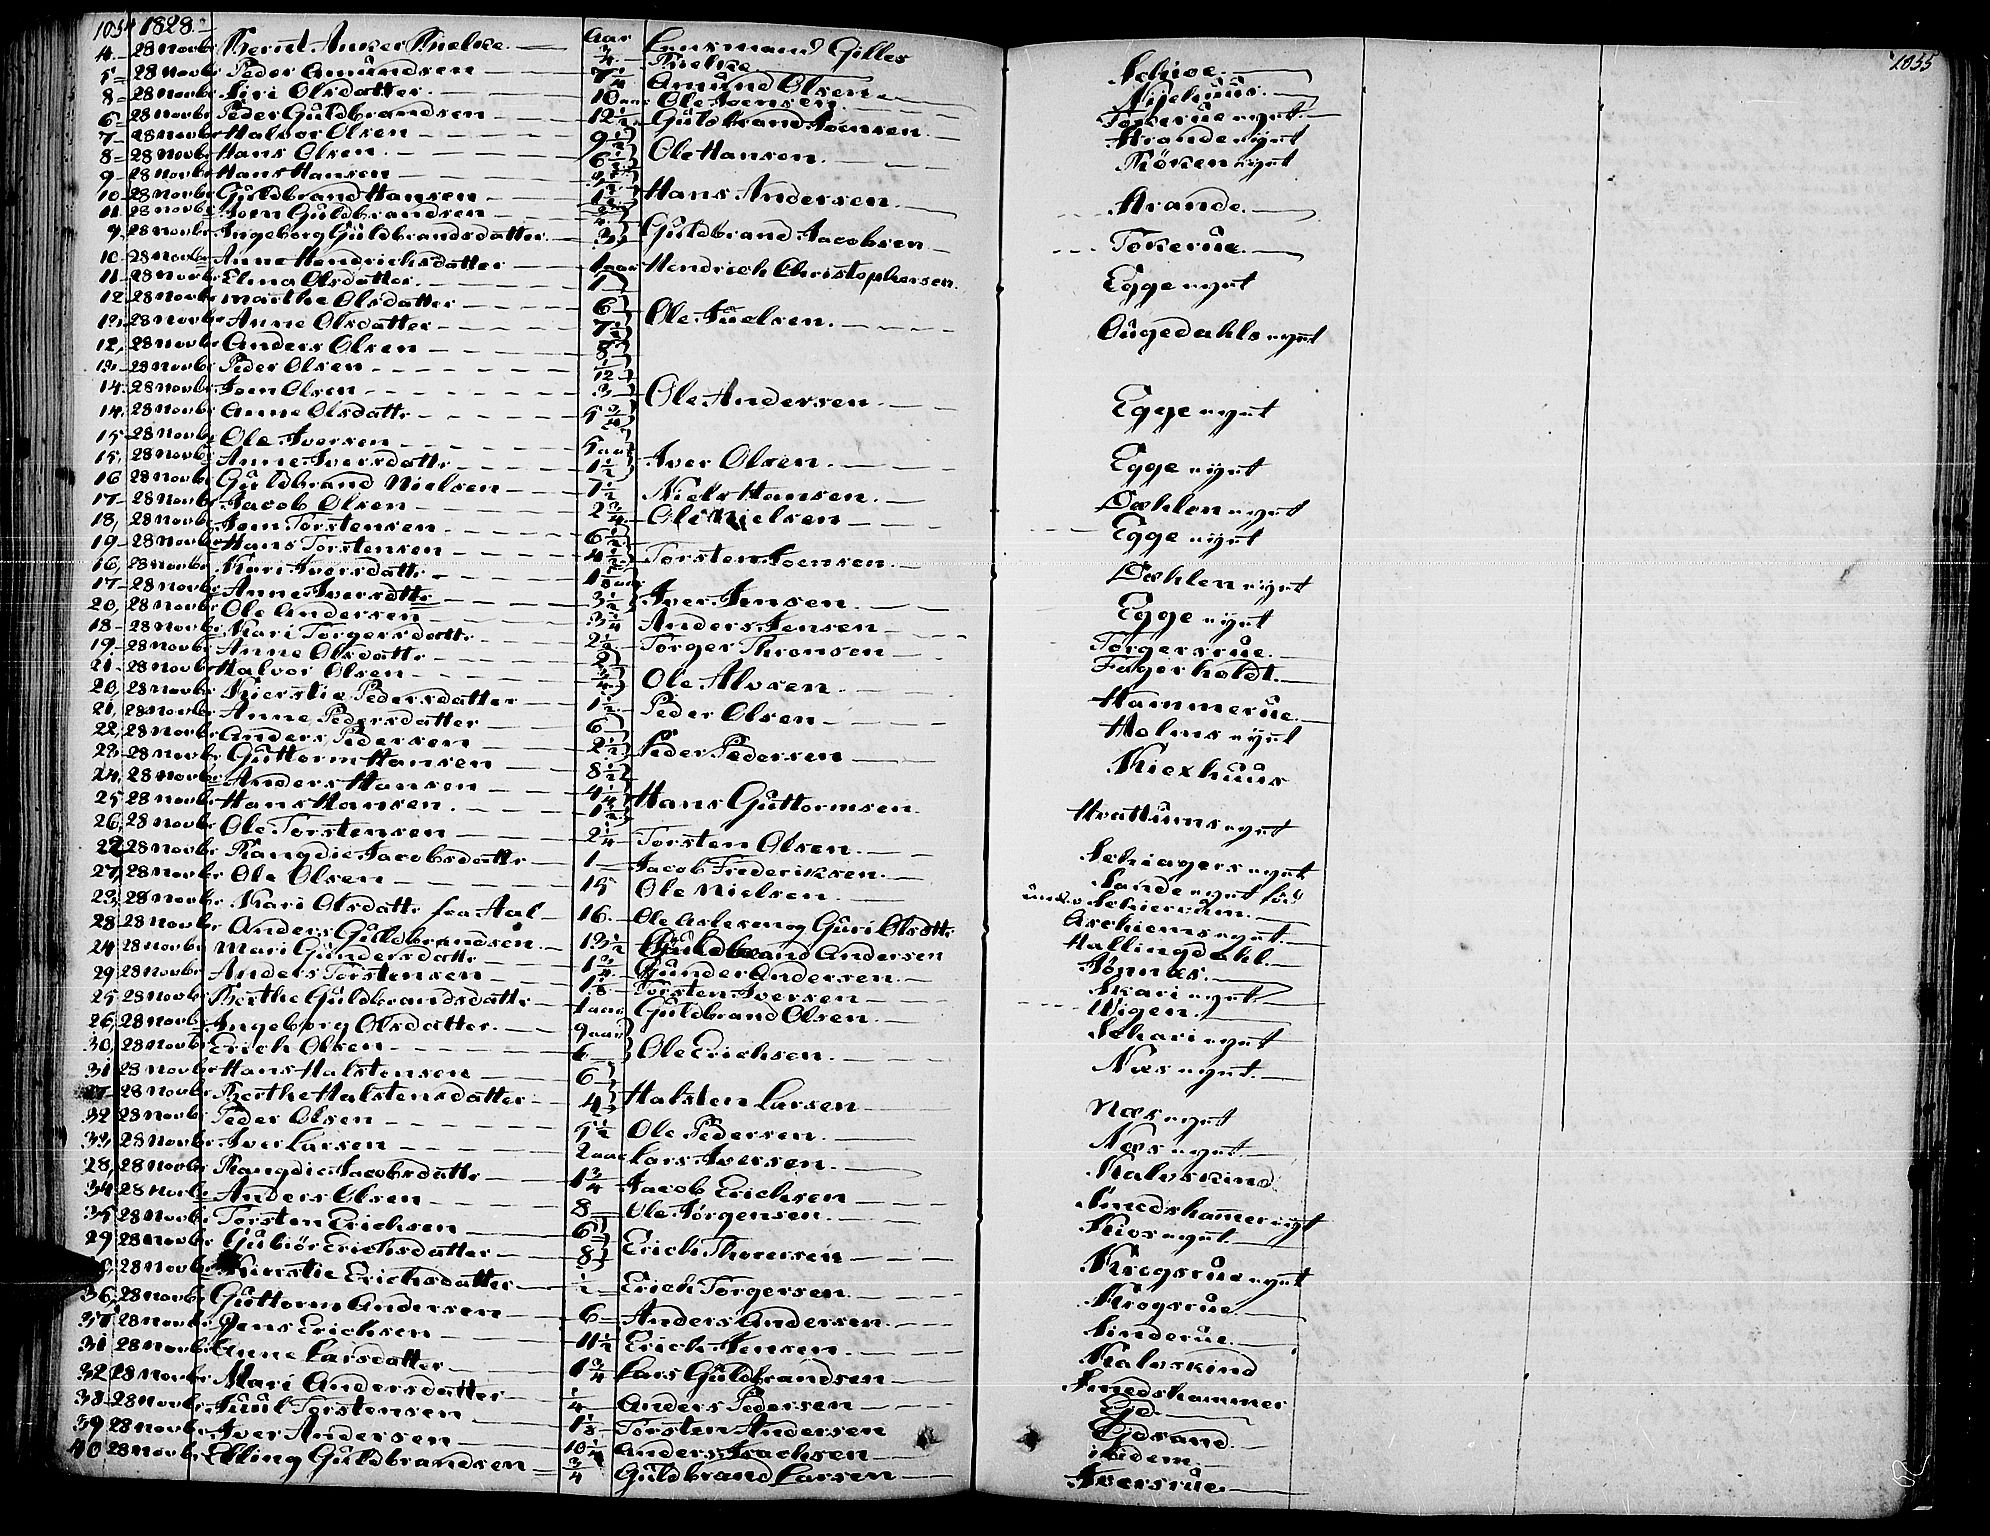 1054 1828. Aar
4. 28 Novbr Bernt Anker Bielke. 3/4 Lensmand Gilles Bielke
5 28 Novbr Peder Amundsen 7 1/4 Amund Olsen
8 28 Novbr Siri Olsdatter. 10 aar Ole Joensen
6 28 Novbr Peder Guldbrandsen 12 1/2 Guldbrand Joensen
7 28 Novbr Halvor Olsen 9 1/2
8 28 Novbr Hans Olsen 6 1/2 Ole Hansen.
9 28 Novbr Hans Hansen
10 28 Novbr Guldbrand Hansen 1 1/2 Hans Andersen
11 28 Novbr Joen Guldbrandsen 3/4
9 28 Novbr Ingeborg Guldbrandsdatter 3 Guldbrand Jacobsen
10 28 Novbr Anne Hendrichsdatter 1 aar Hendrich Christophersen.
11 28 Novbr Elina Olsdatter. 1
12 28 Novbr Marthe Olsdatter 6 Ole Juelsen.
13 28 Novbr Anne Olsdatter 7 1/2
12 28 Novbr Anders Olsen 8
13 28 Novbr Peder Olsen 1/12
14 28 Novbr Joen Olsen 3 Ole Andersen
14 28 Novbr Anne Olsdattr 5 3/4
15 28 Novbr Ole Iversen 5 aar
15 28 Novbr Anne Iversdattr 1 1/2 Iver Olsen
16 28 Novbr Guldbrand Nielsen 1 1/2 Niels Hansen.
17 28 Novbr Jacob Olsen 2 3/4 Ole Nielsen
18 28 Novbr Joen Torstensen 6 1/2
19 28 Novbr Hans Torstensen 4 1/2 Torsten Joensen
16 28 Novbr Kari Iversdattr 1 1/8 aar
17 28 Novbr Anne Iversdttr 3 1/2 Iver Jensen
20 28 Novbr Ole Andersen 3 1/4 Anders Jensen
18 28 Novbr Kari Torgersdattr 2 1/2 Torger Thronsen
19 28 Novbr Anne Olsdattr 2
21 28 Novbr Halvor Olsen 3/4 Ole Alvsen
20 28 Novbr Kierstie Pedersdatter 1 1/2 Peder Olsen
21 28 Novbr Anne Pedersdatter 6
22 28 Novbr Anders Pedersen 2 1/2 Peder Pedersen
23 28 Novbr Guttorm Hansen 8 1/2
24 28 Novbr Anders Hansen 4 1/4 Hans Guttormsen
25 28 Novbr Hans Hansen. 1 1/2
26 28 Novbr Ole Torstensen 2 1/4 Torsten Olsen
22 28 Novbr Rangdie Jacobsdattr 1 Jacob Frederiksen
27 28 Novbr Ole Olsen 15 Ole Nielsen
23 28 Novbr Kari Olsdattr fra Aal 16. Ole Aslesen og Guri Olsdttr
28 28 Novbr Anders Guldbrandsen 13 1/2 Guldbrand Andersen
24 28 Novbr Mari Gundersdattr 1 3/4 Gunder Andersen
29 28 Novbr Anders Torstensen 1 1/8 Torsten Iversen
25 28 Novbr Berthe Guldbrandsdattr 1 aar Guldbrand Olsen
26 28 Novbr Ingeborg Olsdatter. 9 aar
30 28 Novbr Erich Olsen 6 Ole Erichsen
31 28 Novbr Hans Halstensen 6
27 28 Novbr Berthe Halstensdatter 4 Halsten Larsen
32 28 Novbr Peder Olsen 5 1/2 Ole Pedersen
33 28 Novbr Iver Larsen 2 aar Lars Iversen
28 28 Novbr Rangdie Jacobsdattr 1 3/4 Jacob Erichsen
34 28 Novbr Anders Olsen 8 Ole Jørgensen
35 28 Novbr Torsten Erichsen 6
29 28 Novbr Gubiør Erichsdatter 8 Erich Thoresen
28 Novbr Kierstie Erichsdatter 1/2 Erich Torgersen
36 28 Novbr Guttorm Andersen 6 Anders Andersen
37 28 Novbr Jens Erichsen 11 1/2 Erich Jensen
31 28 Novbr Anne Larsdatter 1 3/4 Lars Guldbrandsen
32 28 Novbr Mari Andersdatter 1/4 Anders Pedersen
38 28 Novbr Juul Torstensen 1 1/8 Torsten Andersen
39 28 Novbr Iver Andersen 10 1/4 Anders Isachsen
40 28 Novbr Elling Guldbrandsen 3/4 Guldbrand Larsen
1055
Schioe
Nijehuus
Tokerue eyet
Strande eyet
Røken eyet
Strande.
Tokerue.
Egge eyet
Ougedahls eyet
Egge eyet
Egge eyet
Dæhlen eyet
Egge eyet
Dæhlen eyet
Egge eyet
Torgersrue
Fagerholdt.
Hammerue
Holms eyet
Kiexhuus
Hvattums eyet
Schiagers eyet
Sande eyet
under Schierum
Aschiems eyet
Hallingdahl
Sønnæs
Skari eyet
Wigen
Schari eyet
Næs eyet
Næs eyet
Næs eyet
Kalvskind
Smedshamer eyt
Kios eyet
Krogsrue eyet
Krogsrue
Linderue
Kalvskind
Smedshammer
Ejd
Ejdsand
ibidem
Iversrue